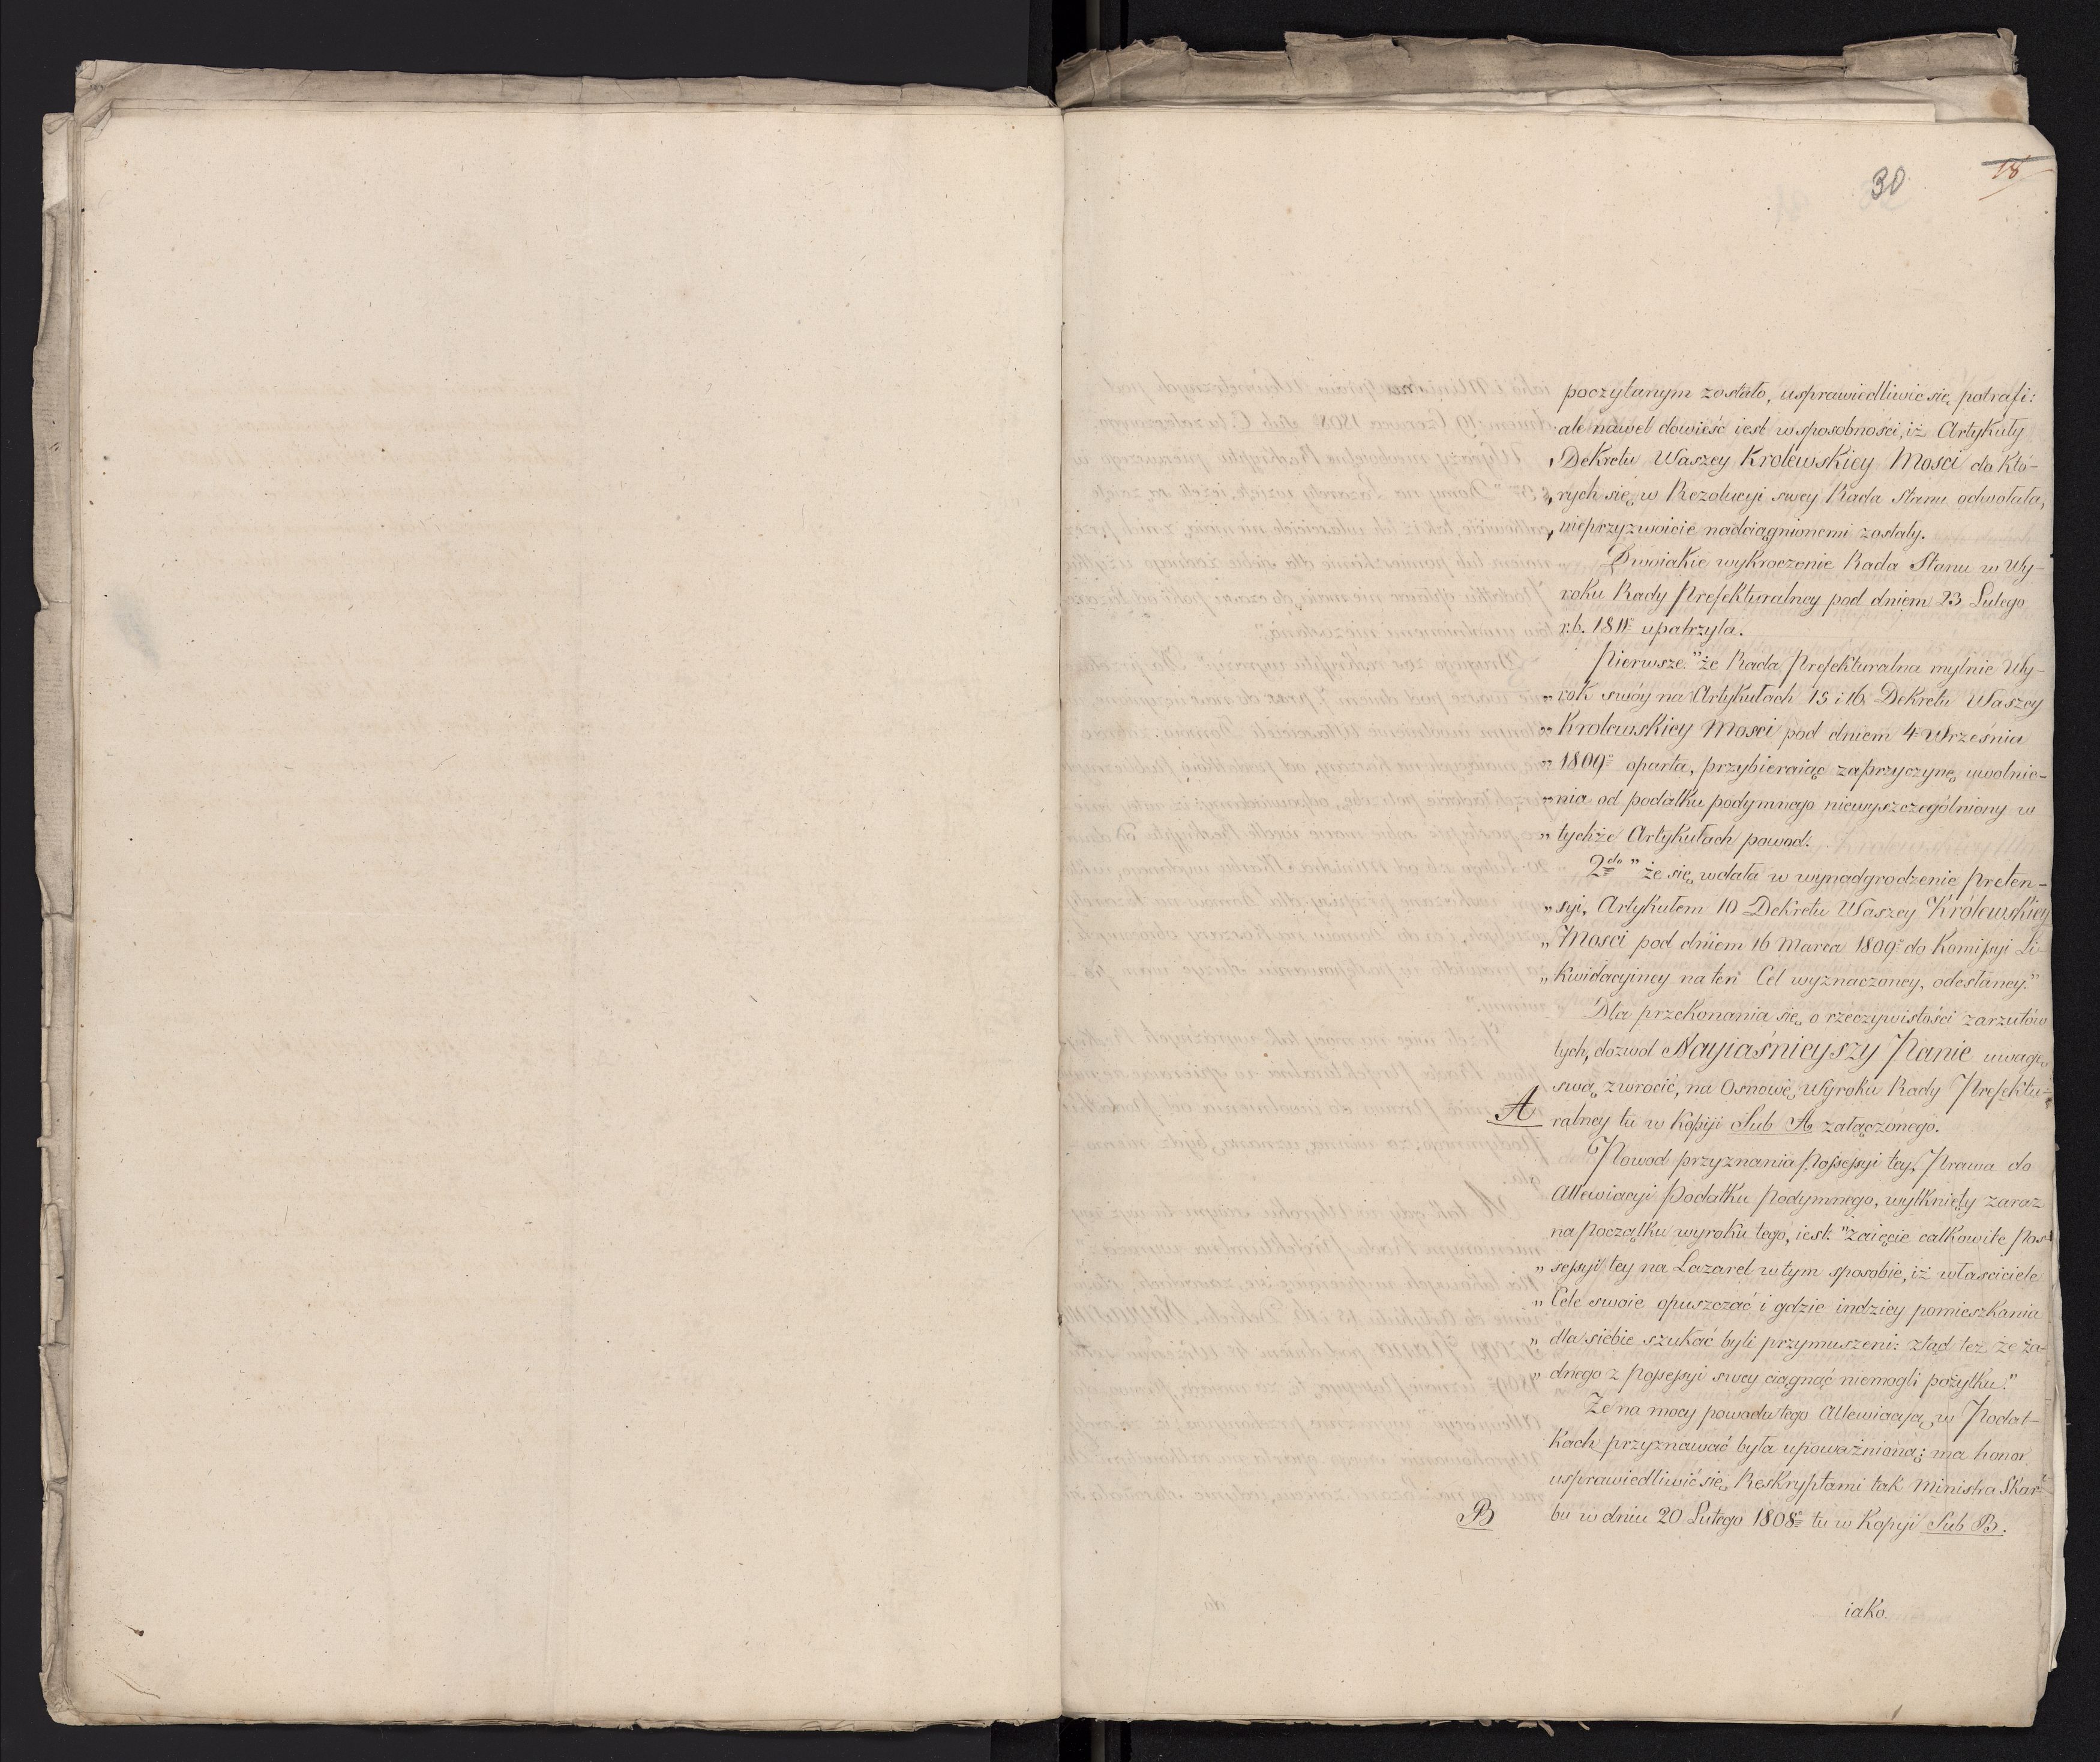 30
18
poczytanym zostało, usprawiedliwić się potrafi:
ale nawet dowieść iest wsposobności, iż Artykuły
„Dekretu Waszey Krolewskiey Mosci do któ-
„rych się w Rezolucyi swey Rada Stanu odwołała,
„nieprzyzwoicie nadciągnionemi zostały.
Dwoiakie wykroczenie Rada Stanu w Wy-
roku Rady Prefekturalney pod dniem 23 Lutego
r.b. 1811 upatrzyła.
Pierwsze "że Rada Prefekturalna mylnie Wy-
„rok swóy na Artykułach 15 i 16 Dekretu Waszey
„Krolewskiey Mosci pod dniem 4 Września
„1809 oparła, przybieraiąc zaprzyczynę uwolnie-
„nia od podatku podymnego niewyszczególniony w
„tychże Artykułach powod.
2do "że się wdała w wynadgrodzenie preten-
„syi, Artykułem 10 Dekretu Waszey Królewskiey
„Mosci pod dniem 16 Marca 1809 do Komissyi Li-
„kwidacyiney na ten Cel wyznaczoney, odesłaney."
Dla przekonania się o rzeczywistości zarzutów
tych, dozwol Nayiaśnieyszy Panie uwagę
swą zwrocić, na Osnowę Wyroku Rady Prefektu-
A ralney tu w Kopiji Sub A załączonego.
Powod przyznania Possessyi tey, Prawa do
Allewiacyi Podatku Podymnego, wytknięty zaraz
na początku wyroku tego, iest: "zaięcie całkowite Pos-
„sessyi tey na Lazaret w tym sposobie, iż własciciele
„Cele swoie opuszczać i gdzie indziey pomieszkania
„dla siebie szukać byli przymuszeni: ztąd też że ża-
„dnego z Possessyi swey ciągnąć niemogli pożytku."
Że na mocy powodu tego Allewiacyą w Podat-
kach przyznawać była upoważniona; ma honor
usprawiedliwić się Reskryptami tak Ministra Skar-
B bu w dniu 20 Lutego 1808 tu w Kopyi Sub B.
iako